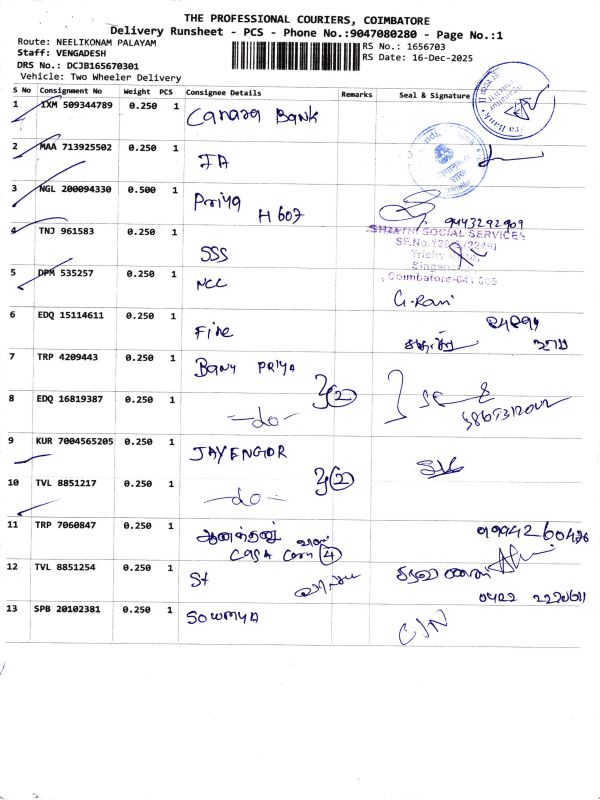 THE PROFESSIONAL COURIERS, COIMBATORE
Delivery Runsheet - PCS - Phone No.:9047080280 - Page No.:1
Route: NEELIKONAM PALAYAM
Staff: VENGADESH
DRS No.: DCJB165670301
Vehicle: Two Wheeler Delivery
RS No.: 1656703
RS Date: 16-Dec-2025
S No Consignment No Weight PCS Consignee Details Remarks Seal & Signature
1 IXM 509344789 0.250 1 Canara Bank
2 MAA 713925502 0.250 1 IA
3 NGL 200094330 0.500 1 Priya H 607 9443292909
4 TNJ 961583 0.250 1 SSS
SHAKTHI SOCIAL SERVICES
Coimbatore-641 005
5 DPM 535257 0.250 1 NCC G. Rani
6 EDQ 15114611 0.250 1 Fine
7 TRP 4209443 0.250 1 Bany PRIYA
8 EDQ 16819387 0.250 1 -do- 2
9 KUR 7004565205 0.250 1 JAYENGOR
10 TVL 8851217 0.250 1 -do- 2
11 TRP 7060847 0.250 1 Casa 4
12 TVL 8851254 0.250 1 St
0422
13 SPB 20102381 0.250 1 Sowmya